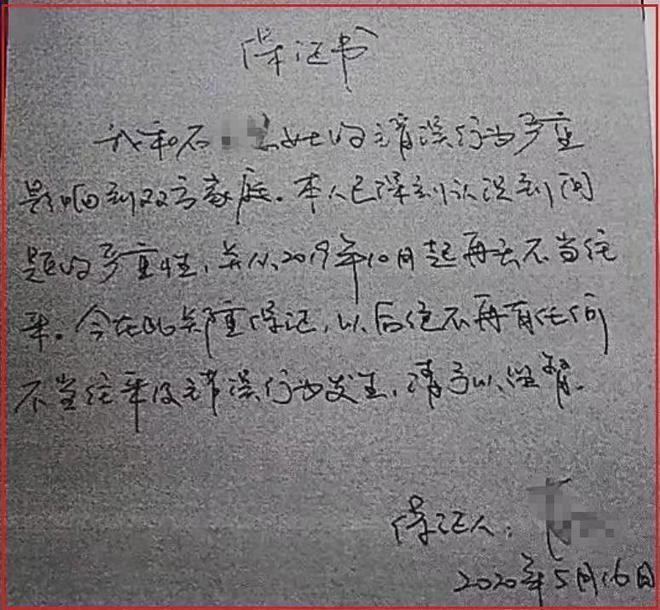 保证书
我和石女士的错误行为严重
影响到双方家庭。本人已深刻认识到问
题的严重性,并从2019年10月起再无不当往
来。今在此郑重保证,以后绝不再有任何
不当往来及错误行为发生,请予以监督。
保证人:
2020年5月16日